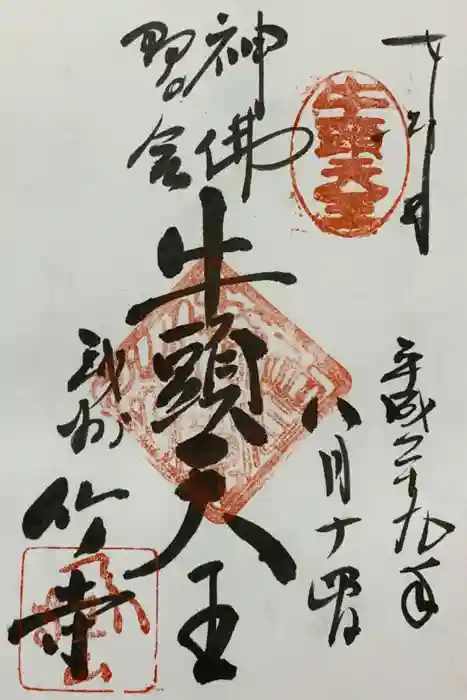 平成二十九年
八月十四日
牛頭天王
神佛
習合
武州
竹寺
牛頭天王